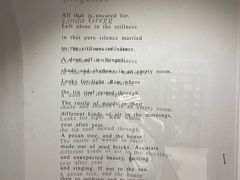 Elegance
Linda Gregg
All that is uncared for.
Left alone in the stillness
in that pure silence married
to the stillness of nature.
A door off its hinges,
shade and shadows in an empty room.
Leaks for light. Raw where
the tin roof rusted through.
The rustle of weeds in their
different kinds of air in the mornings,
year after year.
A pecan tree, and the house
made out of mud bricks. Accurate
and unexpected beauty, rattling
and singing. If not to the sun,